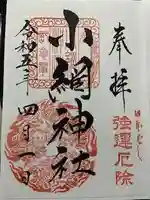 奉拝
強運厄除
小網神社
令和五年四月一日